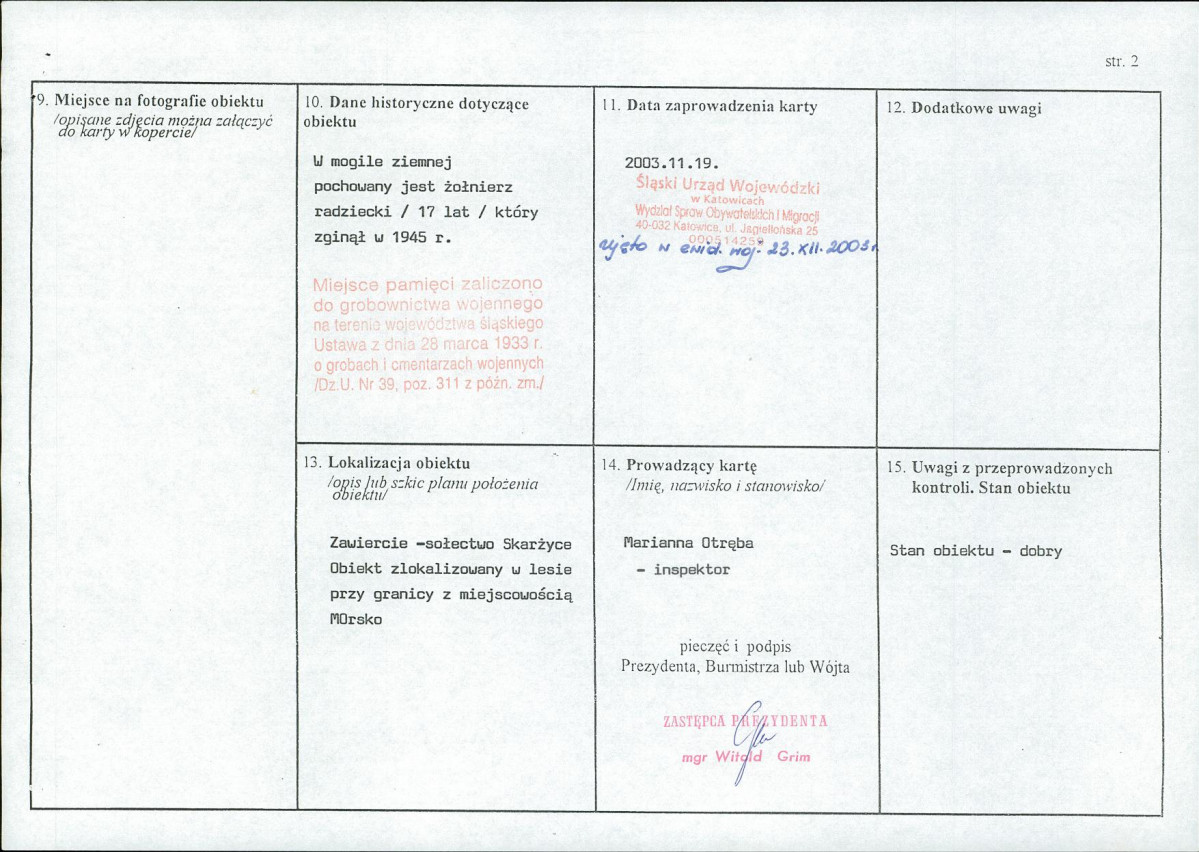 str. 2
9. Miejsce na fotografie obiektu
/opisane zdjęcia można załączyć
do karty w kopercie/
10. Dane historyczne dotyczące
obiektu
W mogile ziemnej
pochowany jest żołnierz
radziecki / 17 lat / który
zginął w 1945 r.
Miejsce pamięci zaliczono
do grobownictwa wojennego
na terenie województwa śląskiego
Ustawa z dnia 28 marca 1933 r.
o grobach i cmentarzach wojennych
/Dz.U. Nr 39, poz. 311 z późn. zm./
11. Data zaprowadzenia karty
2003.11.19.
Śląski Urząd Wojewódzki
w Katowicach
Wydział Spraw Obywatelskich i Migracji
40-032 Katowice, ul. Jagiellońska 25
000514259
ujęto w ewid. woj. 23.XII.2003r.
12. Dodatkowe uwagi
13. Lokalizacja obiektu
/opis lub szkic planu położenia
obiektu/
Zawiercie -sołectwo Skarżyce
Obiekt zlokalizowany w lesie
przy granicy z miejscowością
MOrsko
14. Prowadzący kartę
/Imię, nazwisko i stanowisko/
Marianna Otręba
- inspektor
pieczęć i podpis
Prezydenta, Burmistrza lub Wójta
ZASTĘPCA PREZYDENTA
mgr Witold Grim
15. Uwagi z przeprowadzonych
kontroli. Stan obiektu
Stan obiektu - dobry